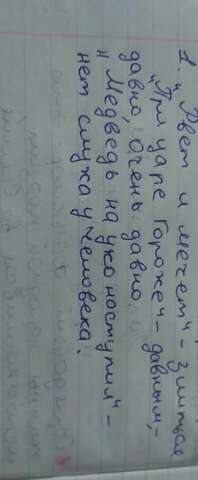 1. "Рвет и мечет" - злиться
"При царе Горохе" - давным-
давно, очень давно.
"Медведь на ухо наступил" -
нет слуха у человека.